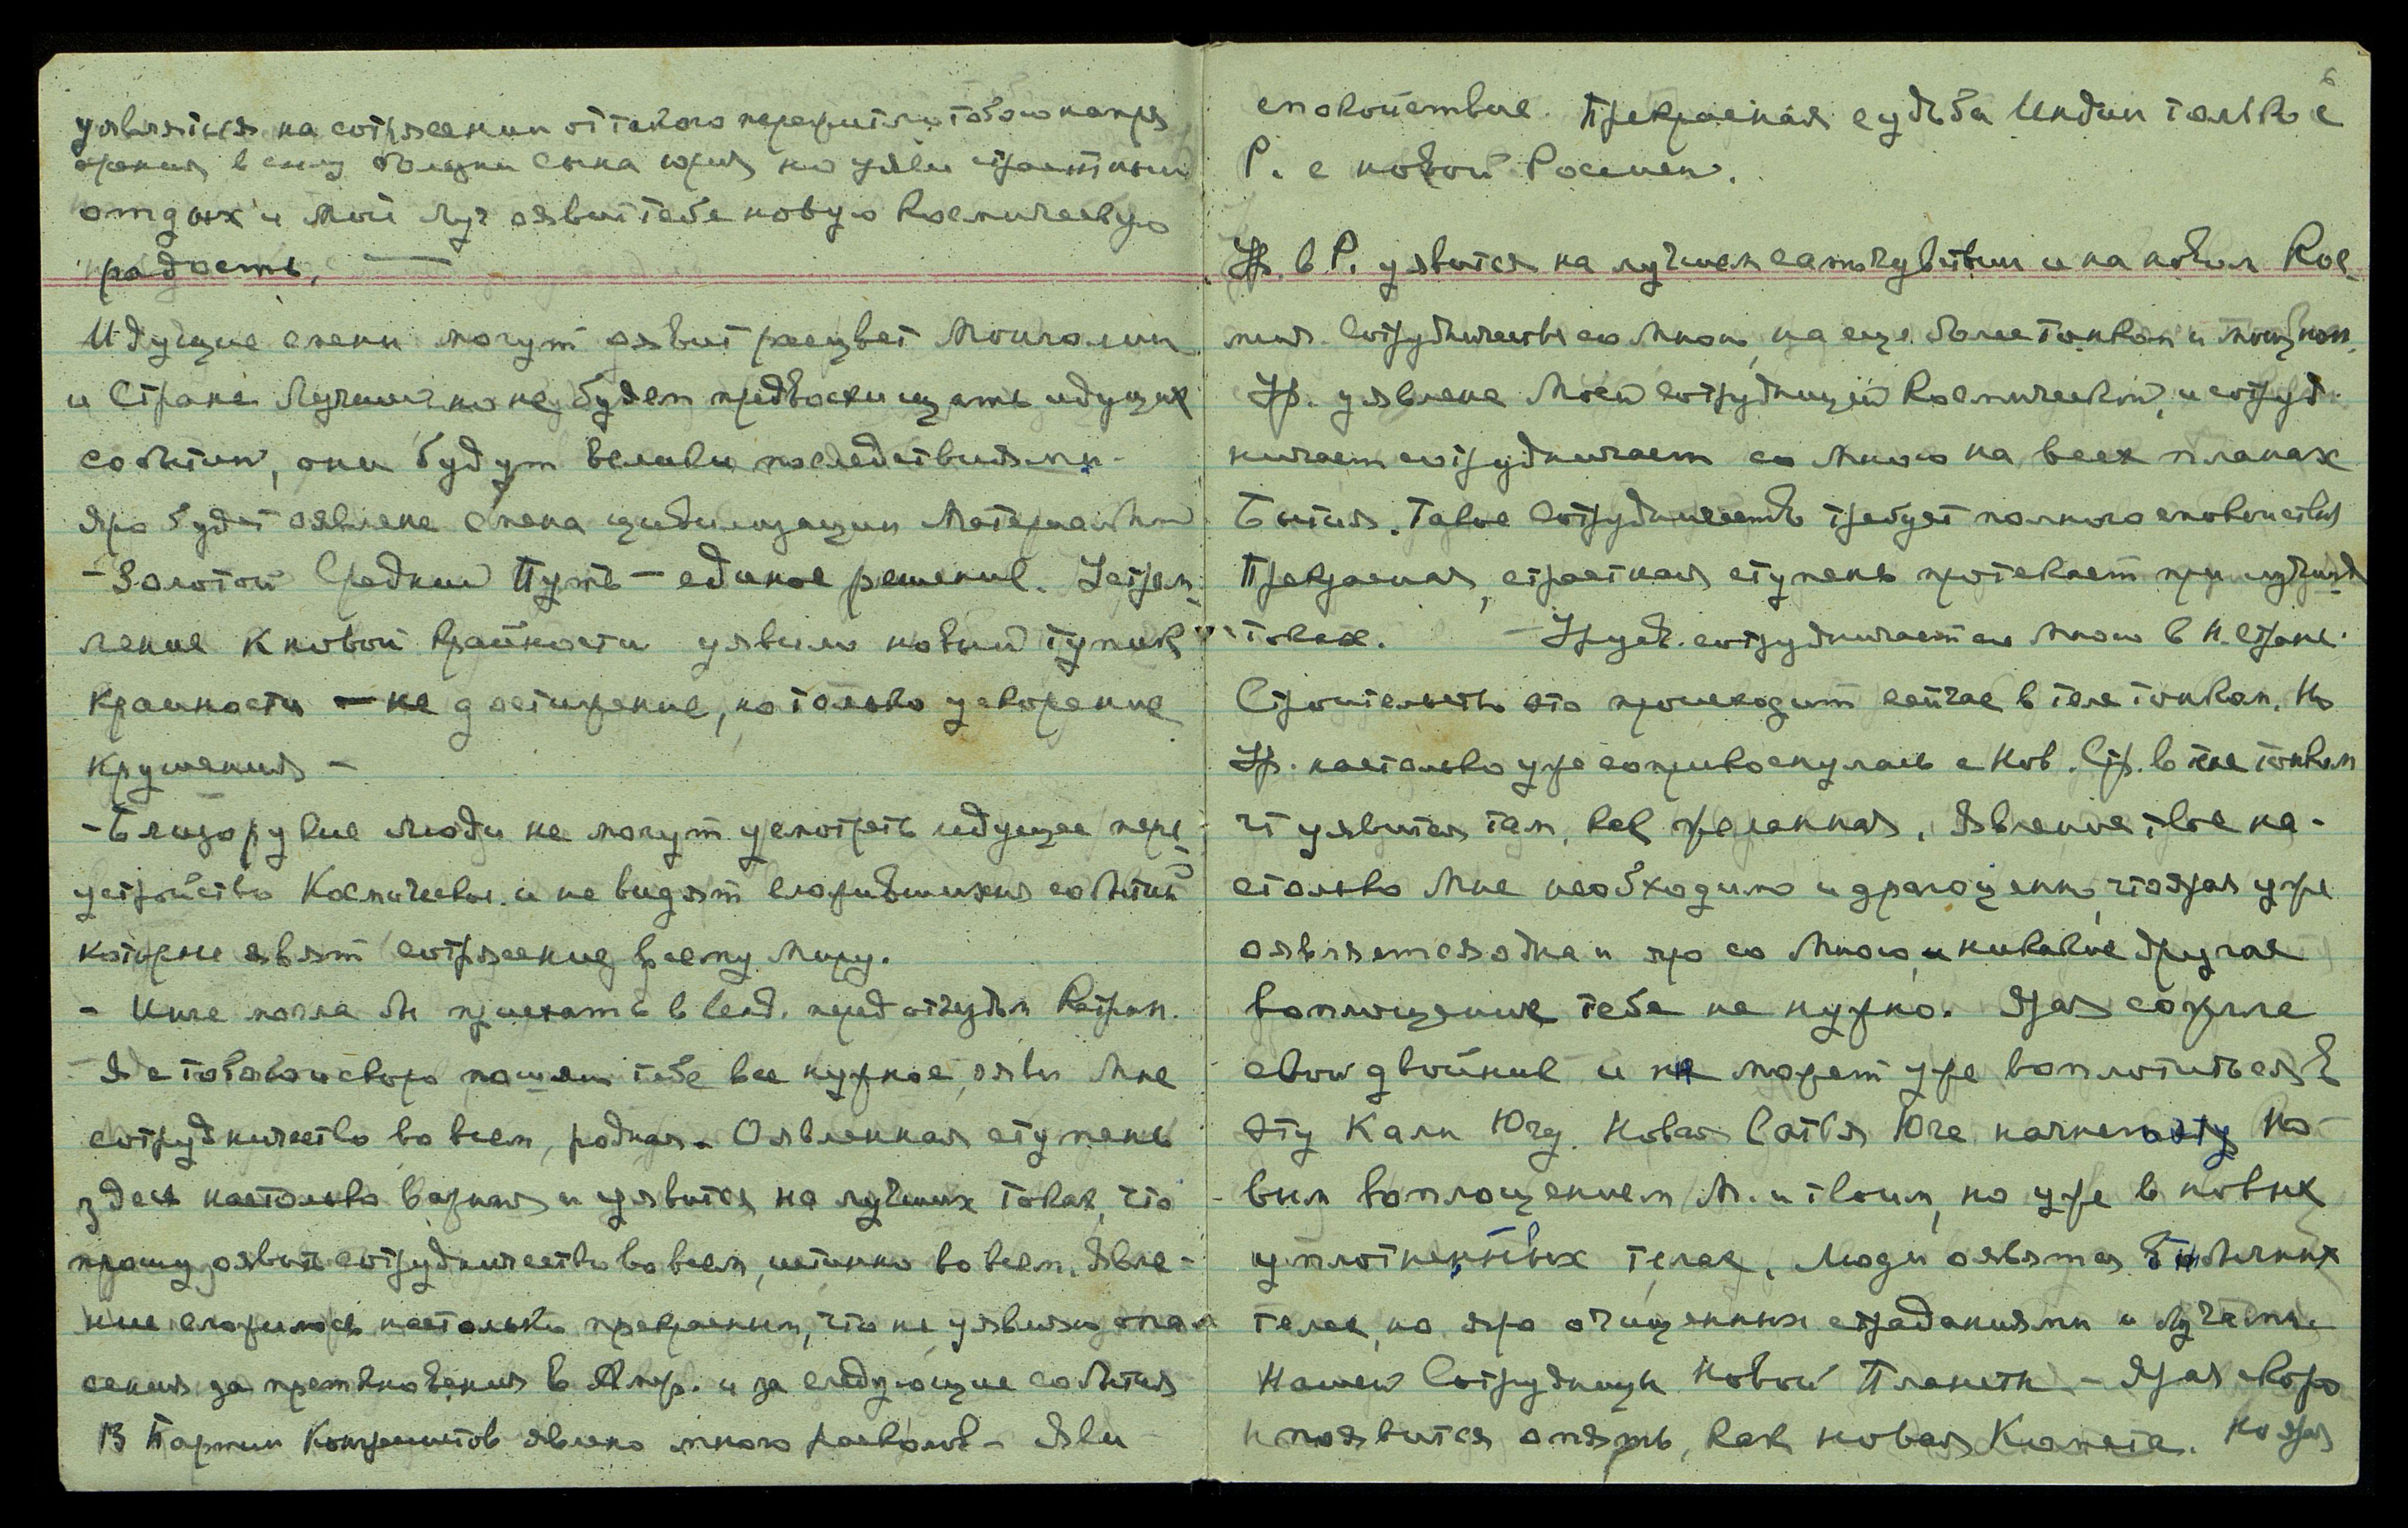 уявляться на сотрясении от такого пережитого тобою напря
жения в силу болезни сына Юрия но уяви страстный
отдых и Мой Луч оявит тебе новую Космическую
радость. —
Идущие смены могут оявит расцвет Монголии
и Стране Лучшей но не будем предвосхищать идущих
событий, они будут велики последствиями.
Яро будет оявлена смена цивилизации Материальной
– Золотой Средний Путь – единое решение. Устрем-
ление к новой крайности уявило новый тупик
крайности – не достижение, но только ускорение
крушения –
– Близорукие люди не могут усмотреть идущее пере-
устройство Космическое и не видят сложившихся событий
которые явят сотрясение всему Миру.
– Инге могла бы приехать в перед отъездом Катрин.
– Я с тобою и скоро пошлем тебе все нужное, ояви Мне
сотрудничество во всем, родная. Оявленная ступень
здесь настолько важна и уявится на лучших токах, что
прошу оявить сотрудничество во всем, истинно во всем. Явле-
ние сложилось настолько прекрасным, что не уявляю опа-
сения за претыкновения в Амер. и за следующие события
В Партии Конгрессистов явлено много расколов – Яви
6
спокойствие. Прекрасная судьба Индии только с
Р. с новой Россией.
Ур. в Р. уявится на лучшем самочувствии и на новом Кос-
мич. Сотрудничестве со Мною, на еще более тонком и мощном.
Ур. уявлена Моей сотрудницей Космической, и сотруд-
ничает сотрудничает со Мною на всех планах
Бытия. Такое Сотрудничество требует полного спокойствия
Прекрасная, страстная ступень протекает при лучших
токах. – Урусв. сотрудничает со Мною в Н. Стране.
Строительство это происходит сейчас в теле тонком. Но
Ур. настолько уже соприкоснулась с Нов. Стр. в теле тонком
чт уявится там, как желанная. Явление твое на-
столько Мне необходимо и драгоценно, что ярая уже
оявляется одна и яро со Мною, и никакие другая
воплощения тебе не нужно. Ярая сожгла
свой двойник и не может уже воплотиться в
эту Кали Югу. Новая Сатья Юга начнет эту Но-
вым воплощением М. и твоим, но уже в новых
уплотненных телах. Люди оявятся в обычных
телах, но яро очищенных страданиями и лучами
Нашей Сотрудницы Новой Планеты – Ярая скоро
и появится опять, как новая Комета. Но ярая